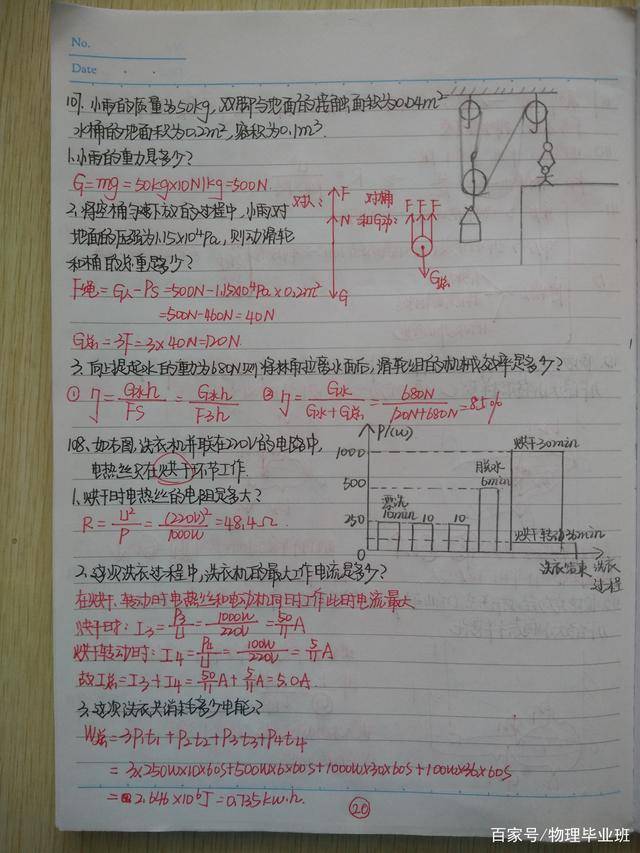 No.
Date
107. 小雨的质量为50kg, 双脚与地面的接触面积为0.04m²
水桶的地面积为0.2m², 容积为0.1m³.
1. 小雨的重力是多少?
G=mg=50kg×10N/kg=500N.
2. 将空桶匀速下放的过程中, 小雨对
地面的压强为1.15×10⁴Pa, 则动滑轮
和桶的总重是多少?
对人: F
N
G
对桶
和G动:
F F F
G总
F绳=G人-PS=500N-1.15×10⁴Pa×0.2m²
=500N-460N=40N
G总=3F=3×40N=120N.
① η=G水h/FS=G水h/F3h ② η=G水/G水+G总=680N/120N+680N=85%
108. 如右图, 洗衣机并联在220V的电路中,
电热丝只在烘干环节工作.
1. 烘干时电热丝的电阻是多大?
R=U²/P=(220V)²/1000W=48.4Ω.
P/(W)
1000
500
250
漂洗
10min 10 10
脱水
6min
烘干30min
烘干转动36min
洗衣结束
洗衣
过程
2. 这次洗衣过程中, 洗衣机的最大工作电流是多少?
在烘干、转动时电热丝和电动机同时工作此时电流最大
烘干时: I3=P3/U=1000W/220V=50/11A
烘干转动时: I4=P4/U=100W/220V=5/11A
故I总=I3+I4=50/11A+5/11A=5.0A.
3. 这次洗衣共消耗多少电能?
W总=3P1t1+P2t2+P3t3+P4t4
=3×250W×10×60S+500W×6×60S+1000W×30×60S+100W×36×60S
=2.646×10⁶J=0.735kw.h.
20
百家号/物理毕业班